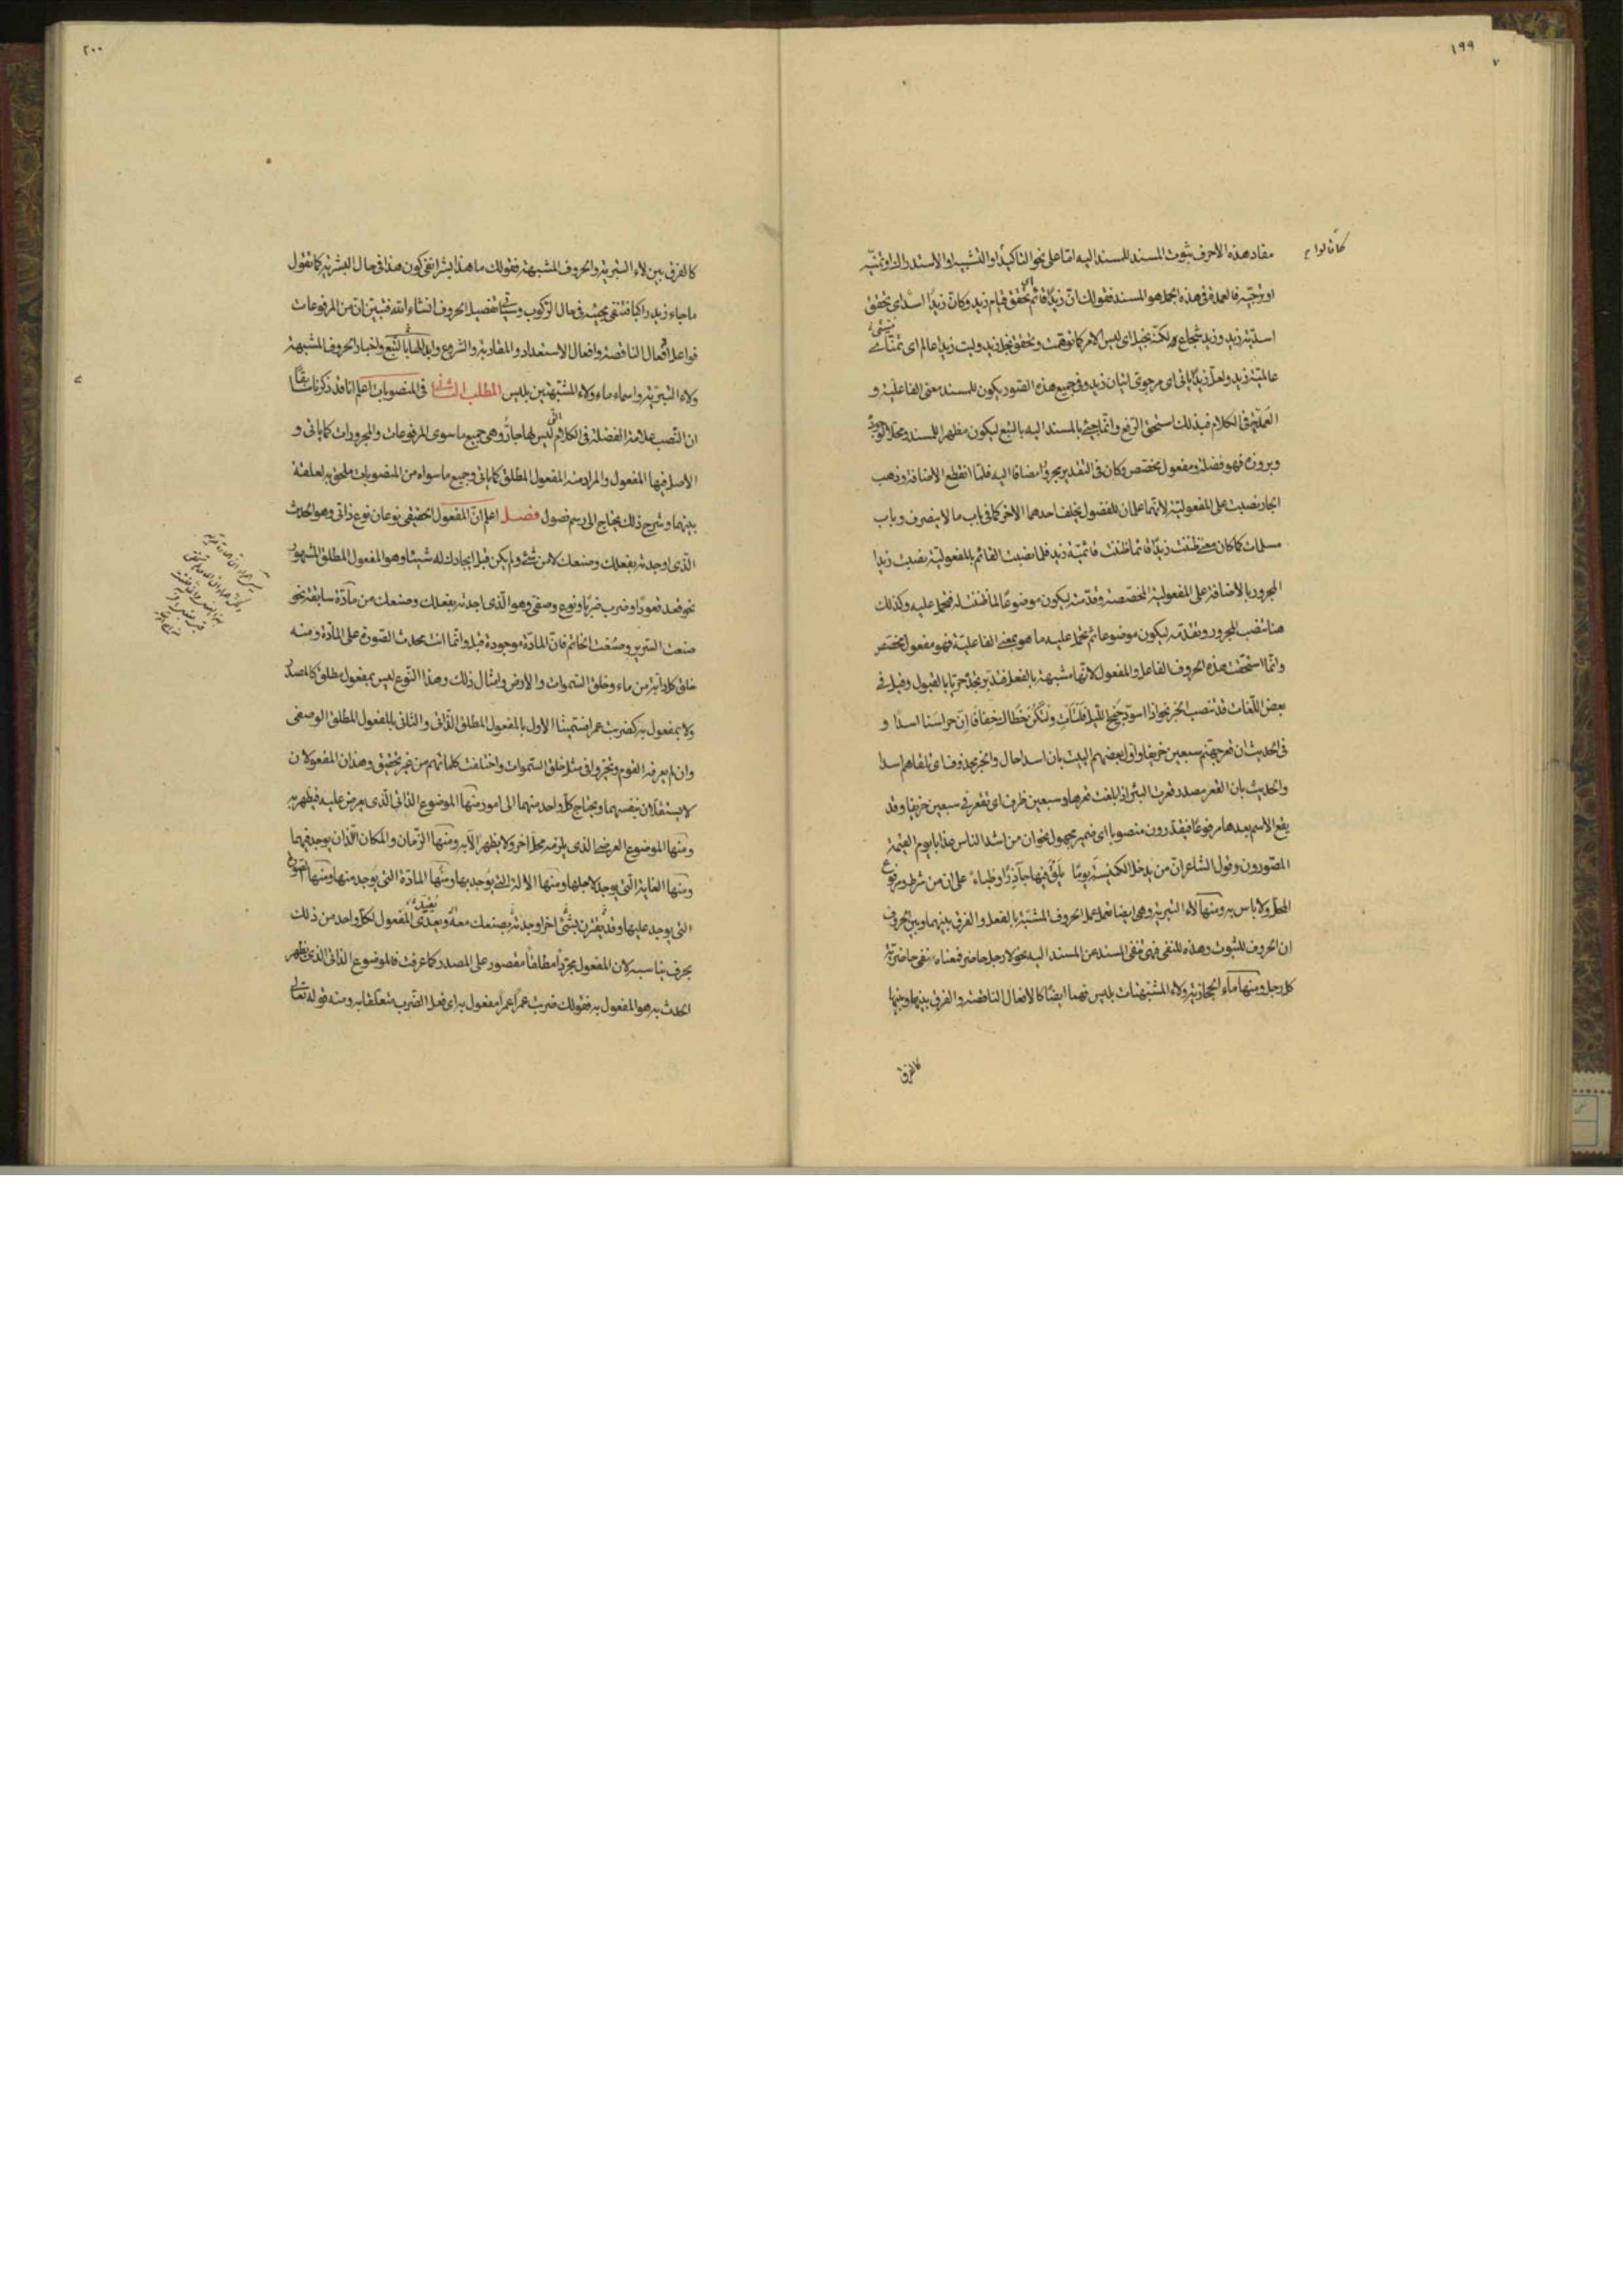 ١٩٩
مفاد هذه الاحرف ثبوت المسند للمسند اليه امّا على نحو التاكيد او التشبيه او الاستدراك او تمنّيه
او ترجّيه فالعمدة فى هذه الجمل هو المسند فقولك انّ زيدًا قائم اى تحقق قيام زيد وكانّ زيدًا اسد اى تحقق
اسديّة زيد وزيد شجاع ولكنّه بخيل اى ليس الامر كما توهّمت وتحقق بخل زيد وليت زيدا عالم اى تمنّائى
عالميّة زيد ولعلّ زيدًا ياتى اى مرجوى اتيان زيد وفى جميع هذه الصور يكون للمسند معنى الفاعليّة و
العمديّة فى الكلام فبذلك استحق الرفع وانّما يجئ بالمسند اليه بالتبع ليكون مظهرا للمسند ومحلا لوجوده
وبروزه فهو فضلة ومفعول تخصّص وكان فى التقدير مجرورًا مضافا اليه فلمّا انقطع الاضافة وذهب
الجار نصبت على المفعوليّة لانّهما علمان للفضول يخلف احدهما الاخر كما فى باب ما لا ينصرف وباب
مسلمات كما كان معنى ظننت زيدًا قائما ظننت قائميّة زيد فلما نصبت القائم بالمفعوليّة نصبت زيدا
المجرور بالاضافة على المفعولية المخصّصة وقدّمته ليكون موضوعًا لما ظننت له فتحمل عليه وكذلك
هنا تنصب المجرور وتقدّمه ليكون موضوعا ثم تحمل عليه ما هو بمعنى الفاعليّة فهو مفعول تخصّص
وانّما استحقت هذه الحروف الفاعل والمفعول لانّها مشبهة بالفعل فتدبر تجده حريّا بالقبول وقيل فى
بعض اللّغات قد تنصب الخبر نحو اذا اسودّ جنح اللّيل فلتأت ولتكن خطاك خفافا انّ حراسنا اسدا و
فى الحديث ان قعر جهنّم سبعين خريفا واوّل بعضهم البيت بان اسدا حال والخبر محذوف اى تلقاهم اسدا
والحديث بان القعر مصدر قعرت البئر اذا بلغت قعرها وسبعين ظرف اى تقعر فى سبعين خريفا وقد
يقع الاسم بعدها مرفوعًا فيقدّرون منصوبا اى ضمير مجهول نحو ان من اشد الناس عذابا يوم القيمة
المصّورون وقول الشاعر انّ من يدخل الكنيسة يومًا يلق فيها جآذرًا وظباءً على ان من شرط ومرفوع
المحلّ ولا باس به ومنها لاء التبرية وهى ايضا تعمل عمل الحروف المشبّهة بالفعل والفرق بينهما وبين الحروف
ان الحروف للثبوت وهذه للنفى فهى تنفى المسند من المسند اليه نحو لا رجل حاضر فمعناه نفى حاضريّة
كل رجل ومنها ماء الحجازيّة ولاء المشبّهتان بليس فهما ايضًا كالافعال الناقصة والفرق بينها وبينها
كالفرق
٢٠٠
كالفرق بين لاء التبرية والحروف المشبهة فقولك ما هذا بشرا نفى كون هذا فى حال البشرية كما تقول
ما جاء زيد راكبا فتنفى مجيئه فى حال الركوب وسياتى تفصيل الحروف انشاء الله فتبيّن ان من المرفوعات
فواعل افعال الناقصة وافعال الاستعداد والمقاربة والشروع وابدالها بالتبع واخبار الحروف المشبهة
ولاء التبرّية واسماء ماء ولاء المشبّهتين بليس المطلب الثانى فى المنصوبات اعلم انا قد ذكرنا سابقًا
ان النّصب علامة الفضلة فى الكلام التى ليس لها جارّ وهى جميع ما سوى المرفوعات والمجرورات كما ياتى و
الاصل فيها المفعول والمراد منه المفعول المطلق كما ياتى وجميع ما سواه من المنصوبات ملحق به لعلقة
بينهما وشرح ذلك يحتاج الى رسم فصول فصل اعلم انّ المفعول الحقيقى نوعان نوع ذاتى وهو الحدث
الّذى اوجدته بفعلك وصنعك لا من شئ ولم يكن قبل ايجادك له شيئا وهو المفعول المطلق المشهور
نحو قعد قعودًا وضرب ضربًا ونوع وصفى وهو الّذى احدثه بفعلك وصنعك من مادّة سابقة نحو
صنعت السّرير وصُغت الخاتم فانّ المادّة موجودة قبل وانّما انت محدث الصّورة على المادّة ومنه
خلق كل دابّة من ماء وخلق السّموات والارض وامثال ذلك وهذا النّوع ليس بمفعول مطلق كالمصدر
ولا بمفعول به كضربت عمرا فسّمينا الاول بالمفعول المطلق الذّاتى والثانى بالمفعول المطلق الوصفى
وان لم يعرفه القوم وتحيّروا فى مثل خلق السّموات واختلفت كلماتهم من غير تحقيق وهذان المفعولان
لا يستقلّان بنفسهما ويحتاج كلّ واحد منهما الى امور منها الموضوع الذاتى الّذى يعرض عليه فيظهر به
ومنها الموضوع العرضى الذى يلزمه محل اخر ولا يظهر الّا به ومنها الزّمان والمكان اللّذان يوجد فيهما
ومنها الغاية الّتى يوجد لاجلها ومنها الالة الّتى يوجد بها ومنها المادّة التى يوجد منها ومنها الصّورة
التى يوجد عليها وقد يقترن بشئ اخر اوجدته بصنعك معه ويعدّى المفعول لكلّ واحد من ذلك
بحرف يناسبه لان المفعول مجردًا مطلقًا مقصور على المصدر كما عرفت فالموضوع الذاتى الذى يظهر
الحدث به هو المفعول به فقولك ضربت عمرًا عمرًا مفعول به اى فعل الضّرب متعلّقا به ومنه قوله تعالى